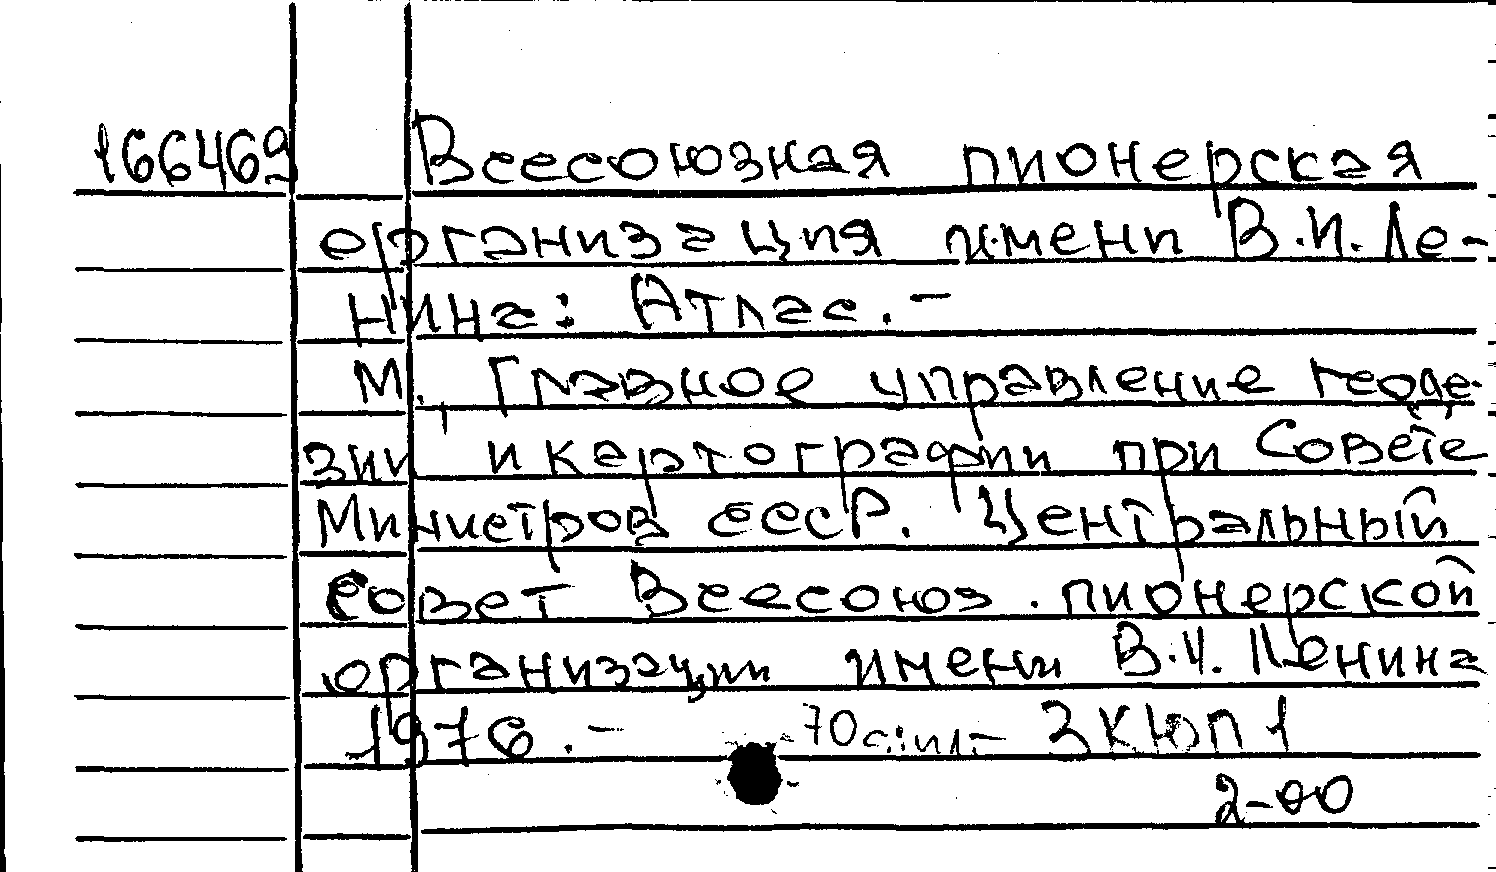 166469 Всесоюзная пионерская
организация имени В.И. Ле-
нина: Атлас. –
М. Главное управление геоде-
зии и картографии при Совете
Министров СССР. Центральный
совет Всесоюз. пионерской
организации имени В.И. Ленина
1976. – 70с.:ил.– 3КЮП1
2-00